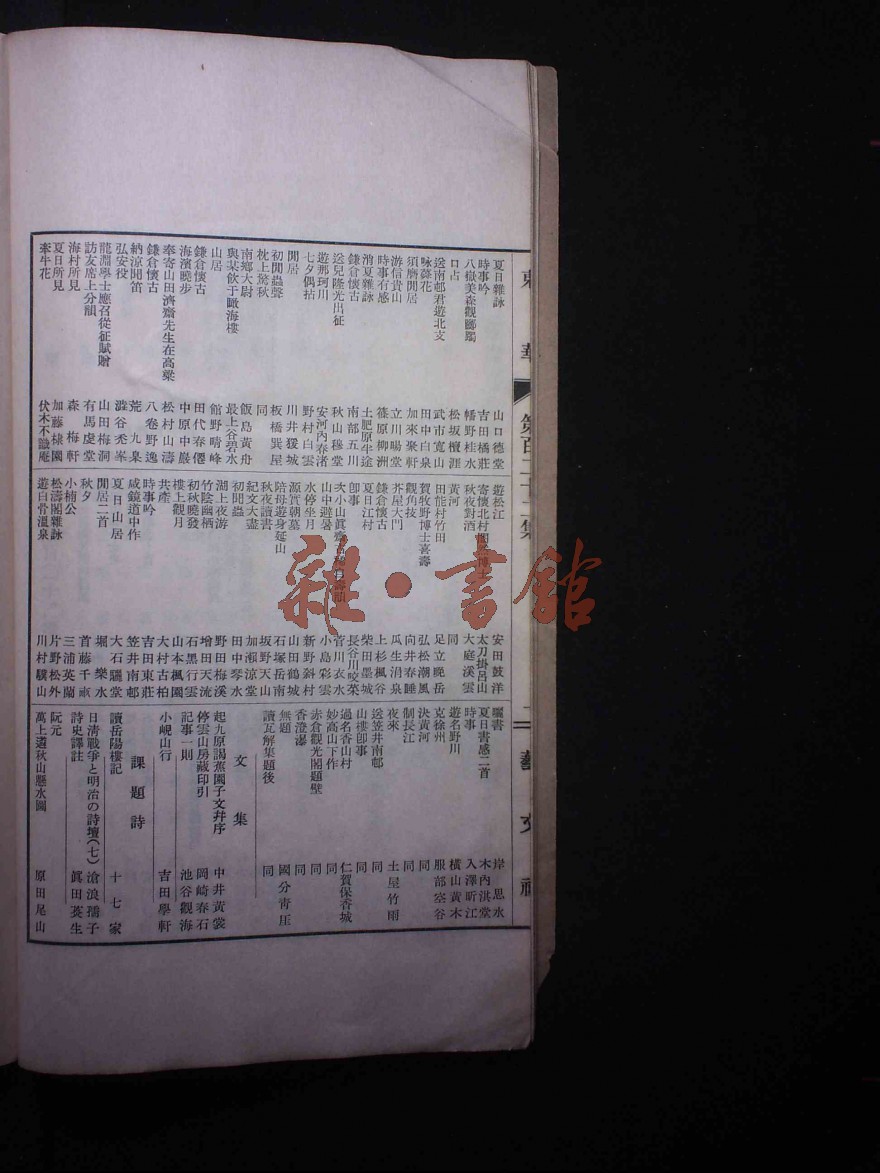 東華 第百二十二集 二 藝文社
夏日雜詠 山口德堂
時事吟 吉田橘莊
八嶽美森觀躑躅 幡野桂水
口占 松坂檀涯
送南邨君遊北支 武市寬山
咏蕣花 田中白泉
須磨閒居 加來聚軒
游信貴山 立川暘堂
時事有感 篠原柳洲
消夏雜詠 土肥原牛途
鎌倉懷古 南部五川
送兒隆光出征 秋山穆堂
遊那珂川 安河內春渚
七夕偶拈 野村白雲
閒居 川井猨城
初聞蟲聲 板橋巽屋
枕上驚秋 同
南鄉大尉 飯島黃舟
與某飲于瞰海樓 最上谷碧水
山居 館野晴峰
鎌倉懷古 田代春僊
海濱曉步 中原中嚴
奉寄山田濟齋先生在高梁 松村山濤
鎌倉懷古 八卷野逸
納涼聞笛 荒九皋
弘安役 澁谷秃峯
龍淵學士應召從征賦贈 山田梅洞
訪友席上分韻 有馬虔堂
海村所見 森梅軒
夏日所見 加藤棣園
牽牛花 伏木不識庵
遊松江 安田鼓洋
寄懷北村 太刀掛呂山
秋夜對酒 大庭溪雲
黃河 同
田能村竹田 足立晚岳
賀牧野博士喜壽 弘松潮風
觀角技 向井春睡
芥屋大門 瓜生涓泉
鎌倉懷古 上杉楓谷
夏日江村 柴田墨城
卽事 長谷川咬菜
次小山眞齋 菅川衣水
山中避暑 小島彩雲
水停坐月 新野斜村
源賞朝墓 山田鶴城
陪母遊身延山 石塚岳南
秋夜讀書 坂野天山
紀文大盡 加瀨涼堂
初聞蟲 田中琴水
湖上夜游 野田梅溪
竹陰幽栖 增田天流
初秋曉發 石黑行雲
樓上觀月 山本楓園
共產 大村古柏
時事吟 吉田東莊
咸鏡道中作 笠井南邨
夏日山居 大石驪堂
閒居二首 堀樂水
秋夕 首藤千畝
小楠公 三浦英蘭
松濤閣雜詠 片野松外
遊白骨溫泉 川村驥山
曬書 岸思水
夏日書感二首 木內淇堂
時事 入澤昕江
遊名野川 橫山黃木
克徐州 服部空谷
決黃河 同
制長江 同
夜來 土屋竹雨
送笠井南邨 同
山樓卽事 同
過名香山村 仁賀保香城
妙高山下作 同
赤倉觀光閣題壁 同
香澄瀑 同
無題 國分靑厓
讀瓦解集題後 同
文集
起九原謁蕉園子文幷序 中井黃裳
停雲山房藏印引 岡崎春石
記事一則 池谷觀海
小峴山行 吉田學軒
課題詩
讀岳陽樓記 十七家
日清戰爭と明治の詩壇(七) 滄浪孺子
詩史譯註 眞田菼生
阮元
萬上遴秋山懸水圖 原田尾山
雜·書館